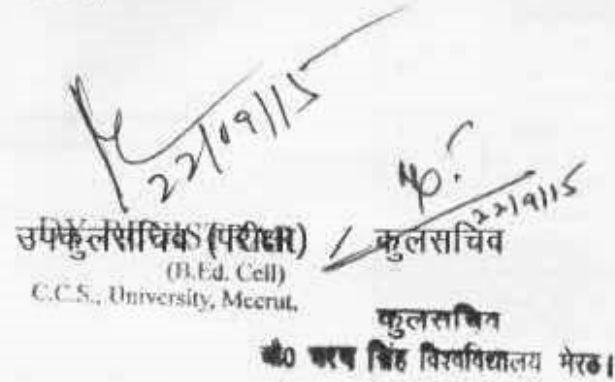 22/09/15
22/9/15
उपकुलसचिव (परीक्षा) / कुलसचिव
(B.Ed. Cell)
C.C.S., University, Meerut.
कुलसचिव
चौ0 चरण सिंह विश्वविद्यालय मेरठ।